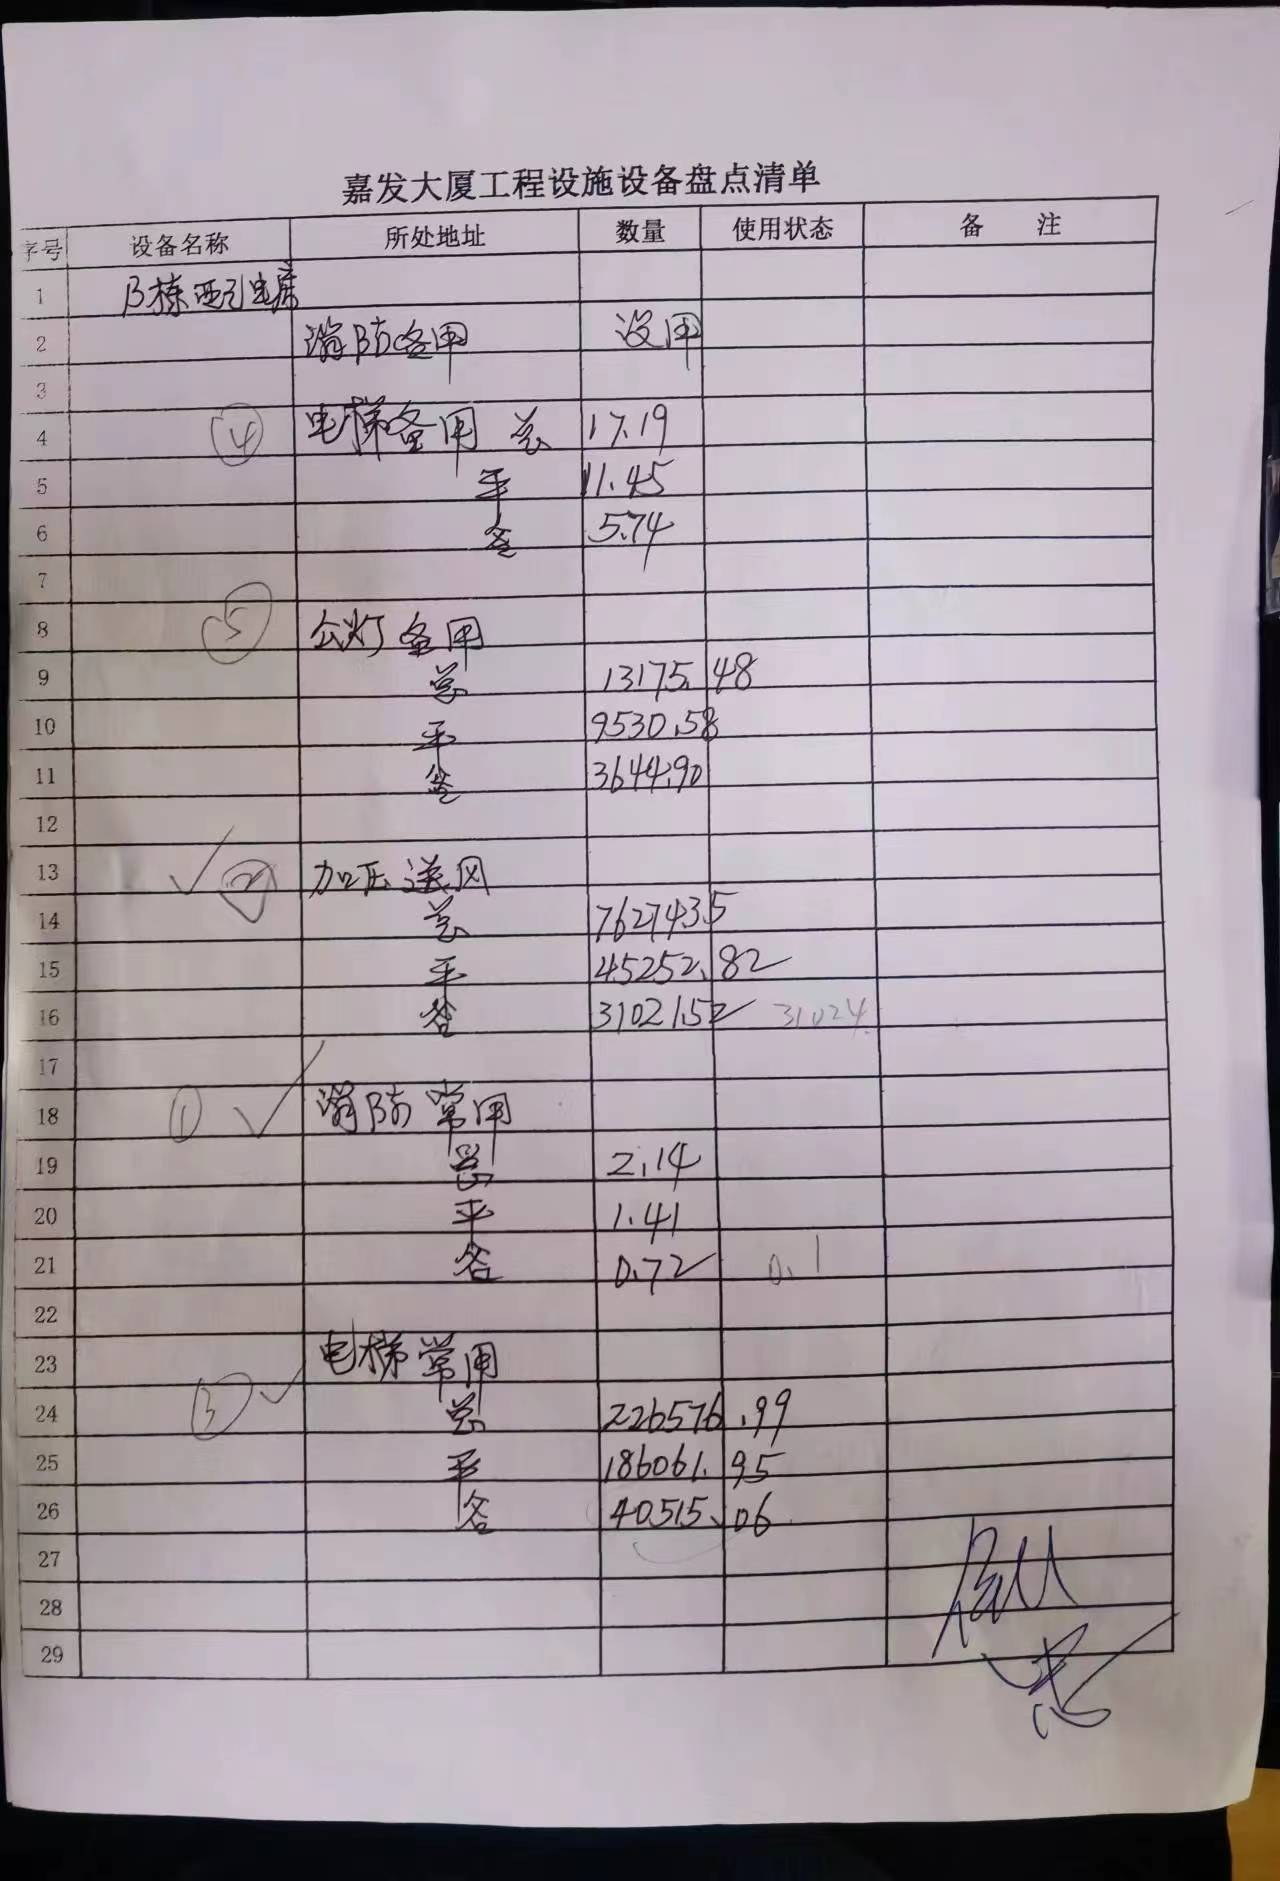 嘉发大厦工程设施设备盘点清单
序号 设备名称 所处地址 数量 使用状态 备 注
1 B栋西配电房
2 消防备用 没用
3
4 ④ 电梯备用 总 17.19
5 平 11.45
6 谷 5.74
7
8 ⑤ 公灯备用
9 总 13175.48
10 平 9530.58
11 谷 3644.90
12
13 ✓ ② 加压送风
14 总 76274.35
15 平 45252.82
16 谷 31021.52 31024
17
18 ① ✓ 消防常用
19 总 2.14
20 平 1.41
21 谷 0.72 0.1
22
23 电梯常用
24 ③ ✓ 总 226576.99
25 平 186061.95
26 谷 40515.06
27
28
29